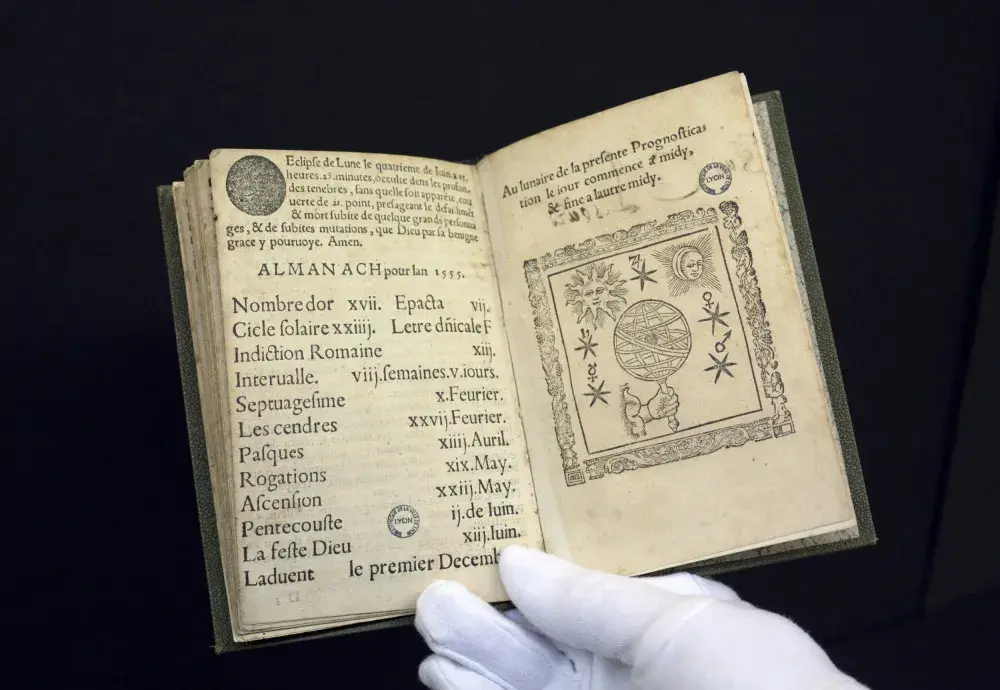 Eclipſe de Lune le quatrieme de Iuin a
heures.23.minutes,occulte dens les profon-
des tenebres, ſans quelle ſoit apparẽte, cou
uerte de point, preſageant le
& mort ſubite de quelque grands perſonna
ges, & de ſubites mutations, que Dieu par ſa benigne
grace y pouruoye. Amen.
ALMANACH pour lan 1555.
Nombre dor xvii. Epacta vij.
Cicle ſolaire xxiij. Letre dñicale F
Indiction Romaine xiij.
Interualle. viij.ſemaines.v.iours.
Septuageſime x.Feurier.
Les cendres xxvij.Feurier.
Paſques xiiij.Auril.
Rogations xix.May.
Aſcenſion xxiij.May.
Pentecouſte ij.de Iuin.
La feſte Dieu xiij.Iuin.
Laduent le premier Decemb
LYON
Au lunaire de la preſente Prognoſtica-
tion le iour commence a midy,
& fine a lautre midy.
LYON